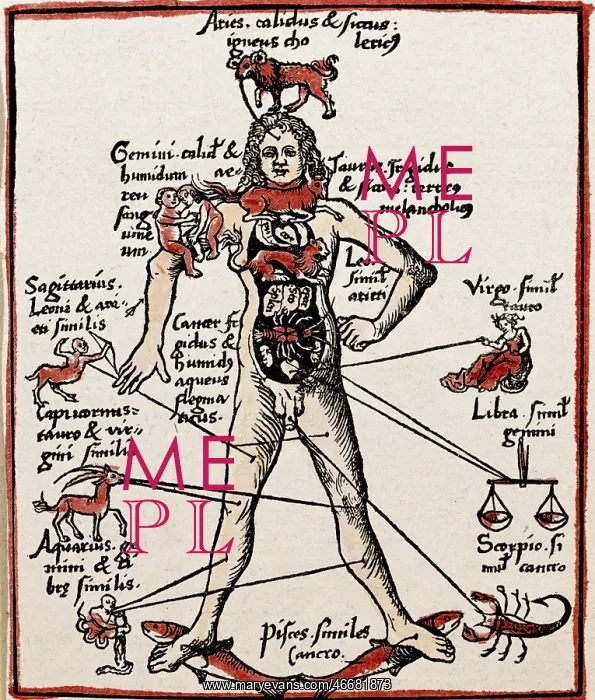 Aries. calidus & siccus:
igneus cho lericꝰ
Gemini. calid &
humidum ae-
reu
sang
uine
um.
Taurus
& sicc: terreꝰ
melancholicꝰ
Leo
simil
arieti
Sagittarius.
Leoni & ari-
eti similis
Virgo. simil
tauro
Cancer fri
gidus &
humidꝰ
aqueus
flegma
ticus.
Capricornus=
tauro & vir-
gini similis
Libra. simil
gemini
ME
PL
ME
PL
Aquarius. ge
mini & li
brę similis.
Scorpio. si
mil cancro
Pisces. similes
Cancro.
www.maryevans.com/46681873